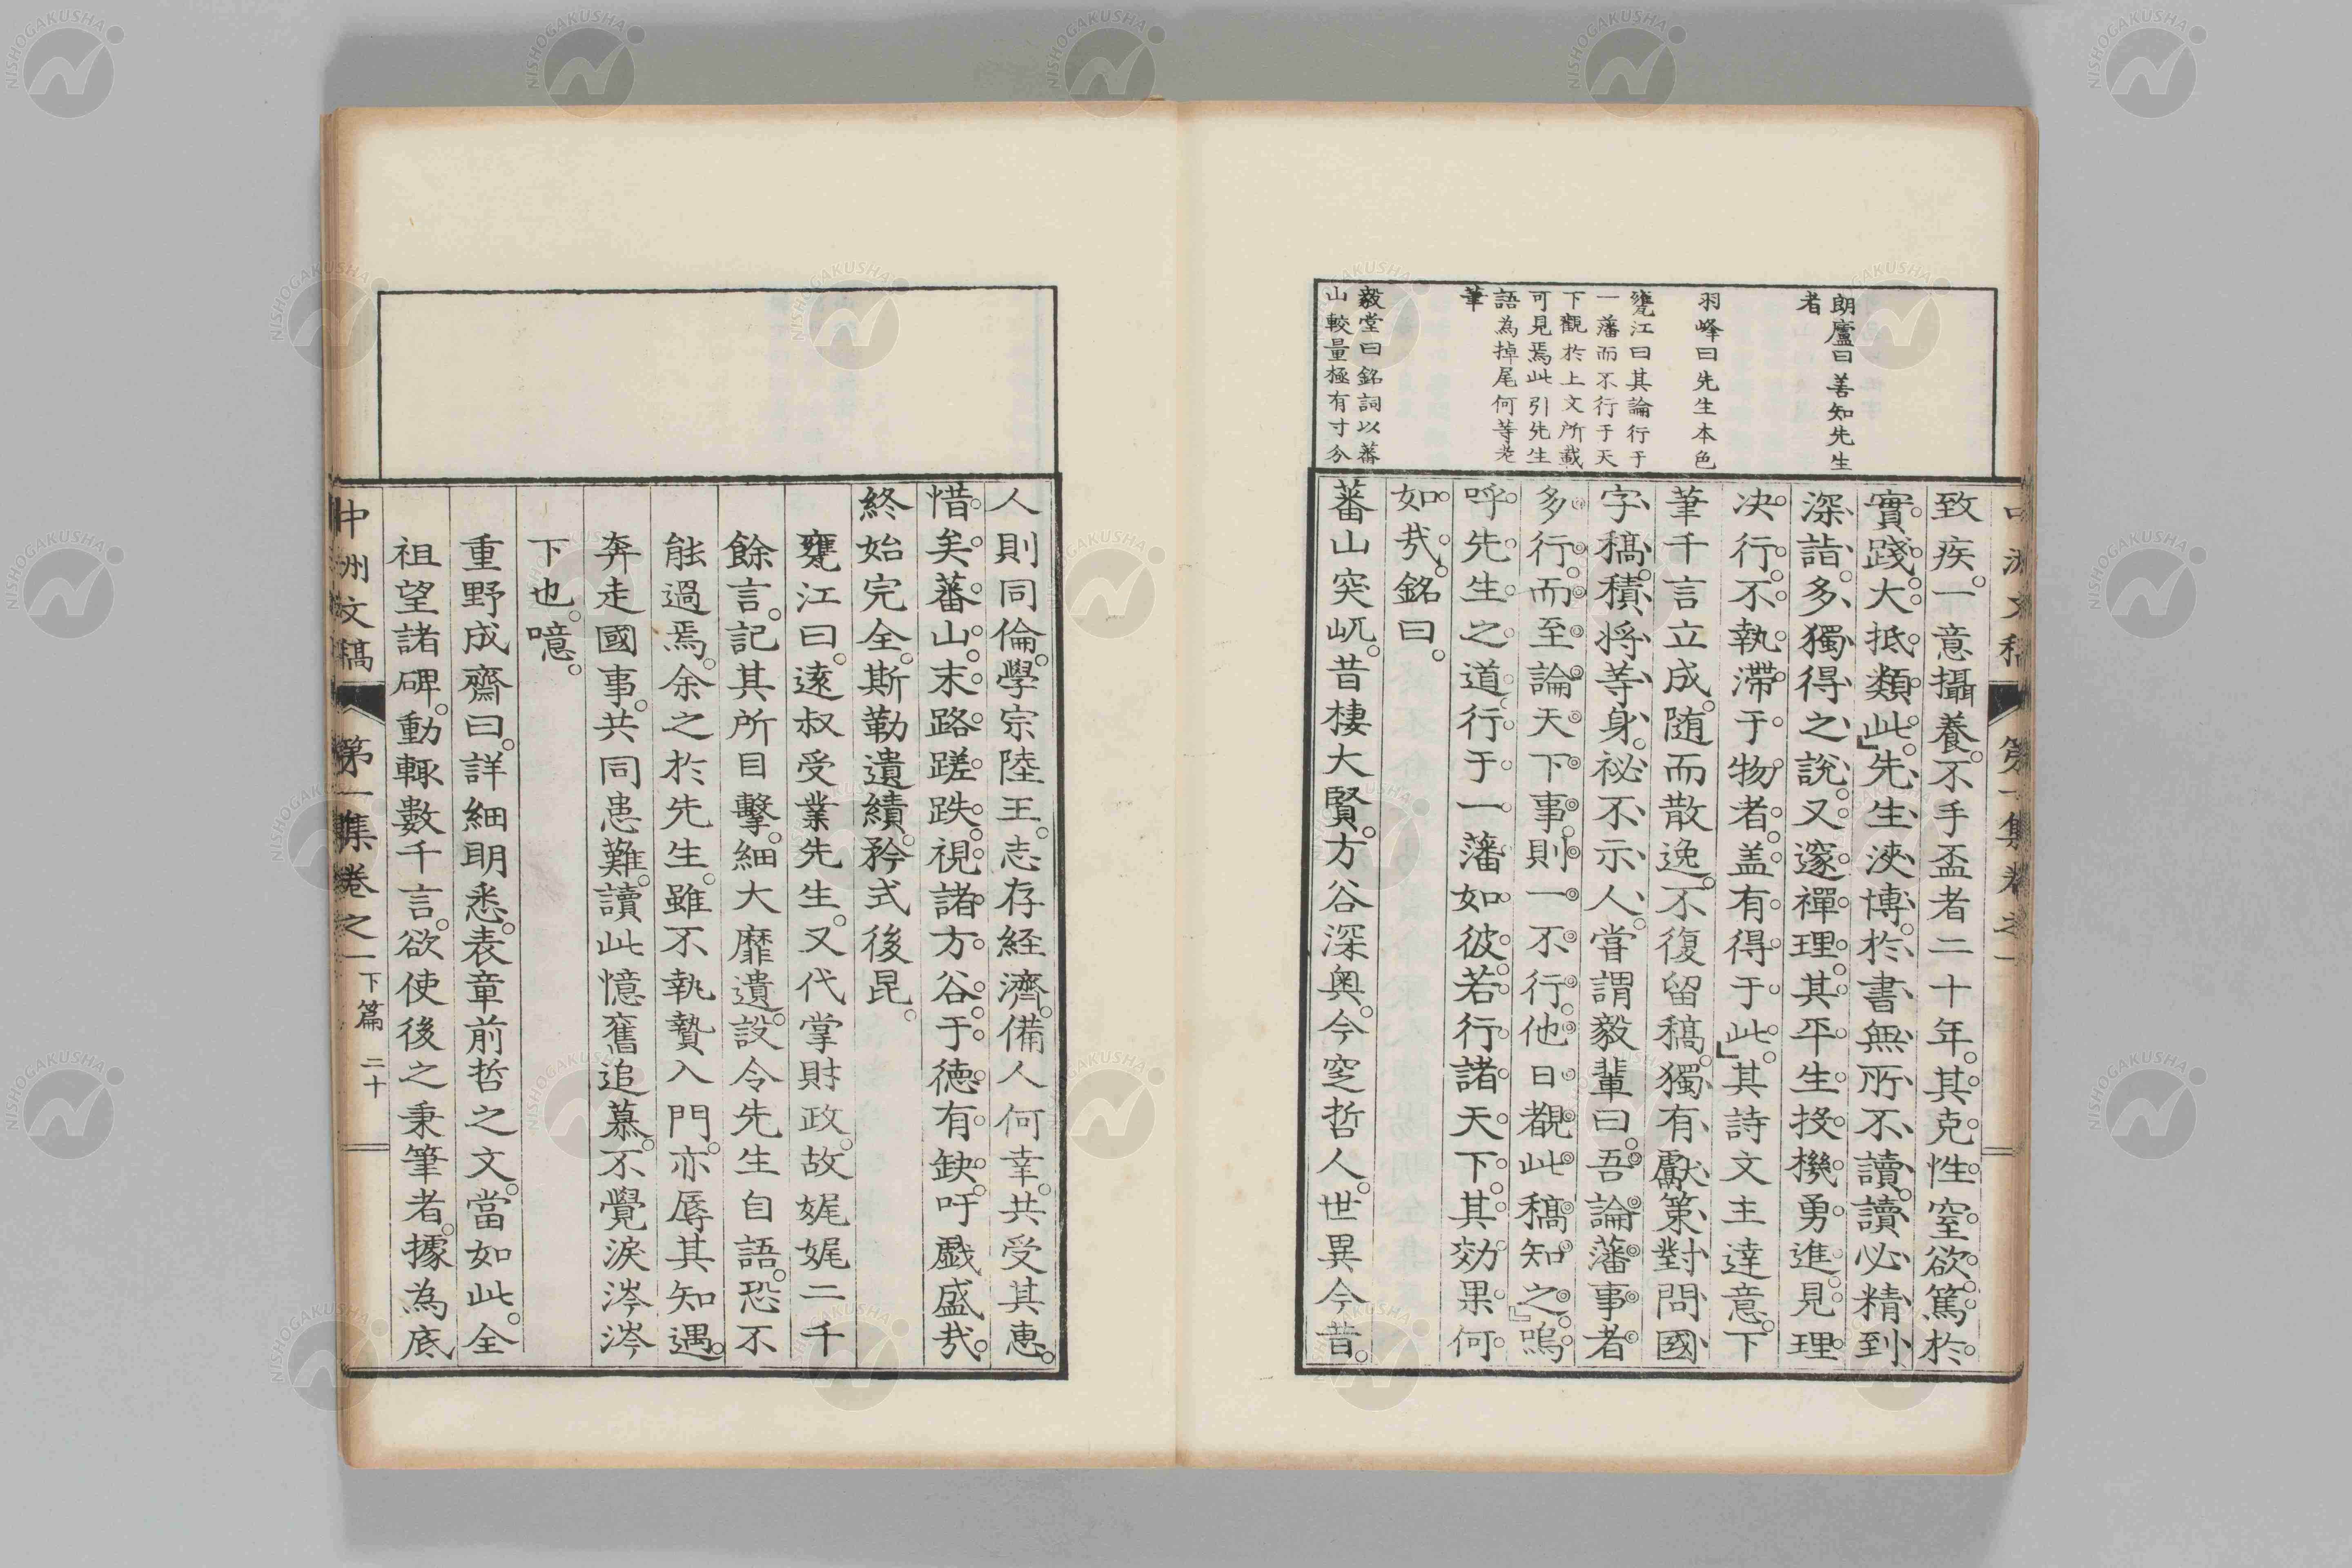 朗廬曰善知先生
者
羽峰曰先生本色
甕江曰其論行于
一藩而不行于天
下觀於上文所載
可見焉此引先生
語為掉尾何等老
筆
毅堂曰銘詞以蕃
山較量極有寸分
致疾。一意攝養。不手盃者二十年。其克性窒欲。篤於
實踐。大抵類此。」先生浹博。於書無所不讀。讀必精到
深詣。多獨得之說。又邃禪理。其平生投機勇進。見理
决行。不執滯于物者。盖有得于此。」其詩文主達意。下
筆千言立成。随而散逸。不復留稿。獨有獻策對問國
字稿。積將等身。祕不示人。嘗謂毅輩曰。吾論藩事者
多行。而至論天下事。則一不行。他日覩此稿知之。」嗚
呼先生之道。行于一藩如彼。若行諸天下。其効果何
如㢤。銘曰。
蕃山突屼。昔棲大賢。方谷深奧。今空哲人。世異今昔。
人則同倫。學宗陸王。志存経濟。備人何幸。共受其惠。
惜矣。蕃山末路蹉跌。視諸方谷。于徳有缺。吁戯盛㢤。
終始完全。斯勒遺績。矜式後昆。
甕江曰。遠叔受業先生。又代掌財政。故娓娓二千
餘言。記其所目擊。細大靡遺。設令先生自語。恐不
能過焉。余之於先生。雖不執贄入門。亦辱其知遇。
奔走國事。共同患難。讀此憶舊追慕。不覺淚涔涔
下也。噫。
重野成齋曰。詳細明悉。表章前哲之文。當如此。全
祖望諸碑。動輒數千言。欲使後之秉筆者。據為底
中洲文稿 第一集卷之一下篇 二十